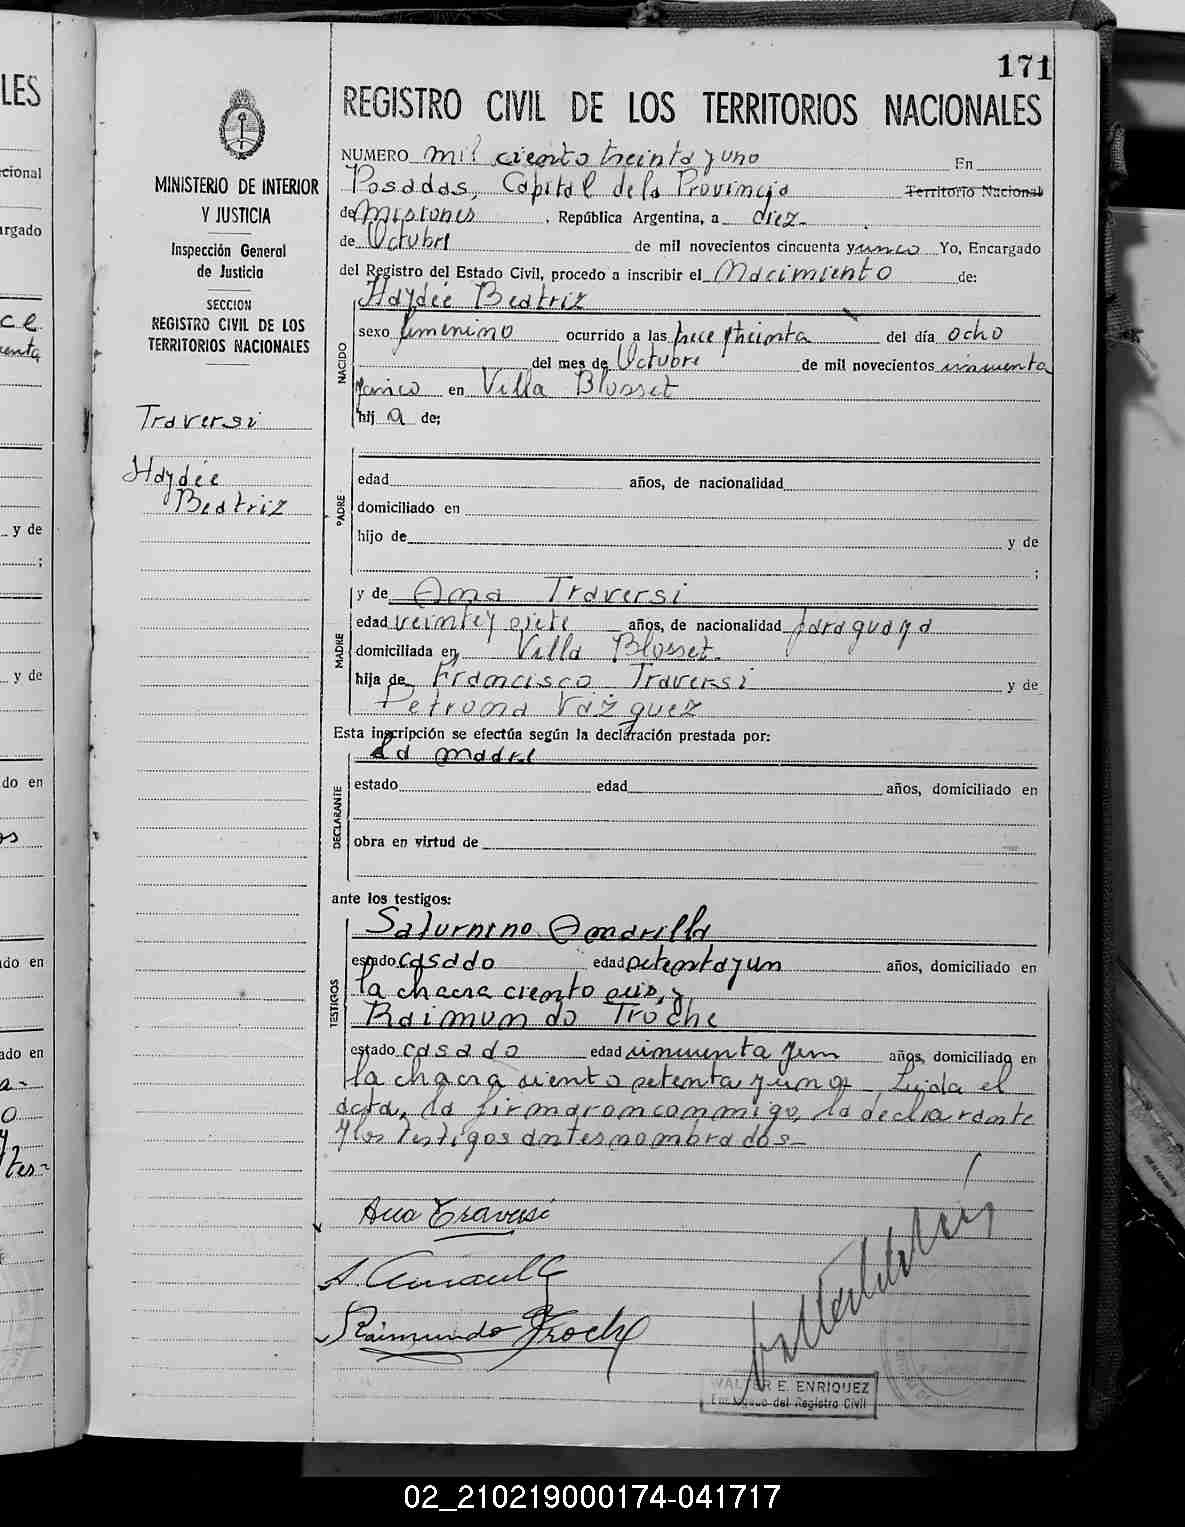 171
REGISTRO CIVIL DE LOS TERRITORIOS NACIONALES
MINISTERIO DE INTERIOR
Y JUSTICIA
Inspección General
de Justicia
SECCION
REGISTRO CIVIL DE LOS
TERRITORIOS NACIONALES
Traversi
Haydée
Beatriz
NUMERO mil ciento treinta y uno En
Posadas, Capital de la Provincia Territorio Nacional
de Misiones , República Argentina, a diez
de Octubre de mil novecientos cincuenta y cinco Yo, Encargado
del Registro del Estado Civil, procedo a inscribir el Nacimiento de:
NACIDO
Haydée Beatriz
sexo femenino ocurrido a las trece y treinta del día ocho
del mes de Octubre de mil novecientos cincuenta
y cinco en Villa Blosset
hij a de;
PADRE
edad años, de nacionalidad
domiciliado en
hijo de y de
;
MADRE
y de Ana Traversi
edad veinte y siete años, de nacionalidad paraguaya
domiciliada en Villa Blosset.
hija de Francisco Traversi y de
Petrona Vázquez
Esta inscripción se efectúa según la declaración prestada por:
DECLARANTE
la madre
estado edad años, domiciliado en
obra en virtud de
ante los testigos:
TESTIGOS
Saturnino Amarilla
estado casado edad setenta y un años, domiciliado en
la chacra ciento seis, y
Raimundo Troche
estado casado edad cincuenta y un años, domiciliado en
la chacra ciento setenta y uno Leida el
acta, la firmaron conmigo, la declarante
y los testigos antes nombrados
Ana Traversi
Raimundo Troche
WALTER E. ENRIQUEZ
Encargado del Registro Civil
LES
cional
argado
ce
enta
y de
;
y de
do en
os
do en
ado en
a-
o
y
tes-
02_210219000174-041717